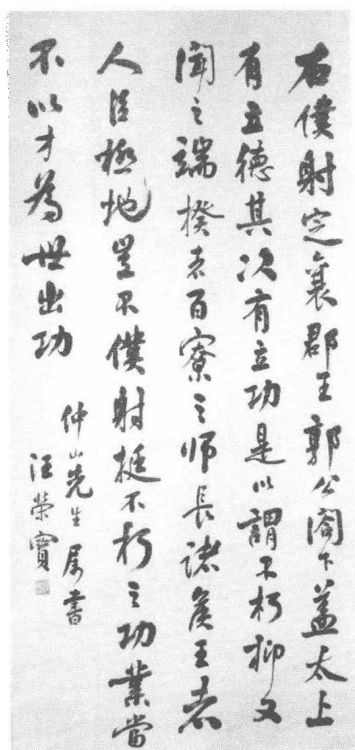 右僕射定襄郡王郭公閤下蓋太上
有立德其次有立功是以謂不朽抑又
聞之端揆者百寮之师長諸侯王者
人臣極地豈不僕射挺不朽之功業當
不以才為世出功
仲山先生属書
汪榮寶